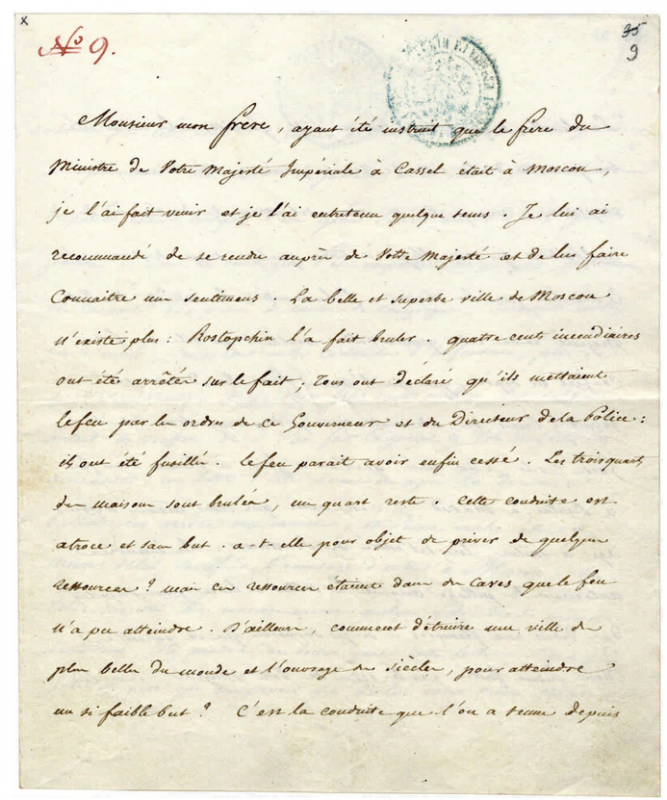 x
35
9
№ 9.
Monsieur mon frere, ayant été instruit que le frere du
Ministre de Votre Majesté Impériale à Cassel était à Moscou,
je l'ai fait venir et je l'ai entretenu quelque tems. Je lui ai
recommandé de se rendre auprès de Votre Majesté et de lui faire
connaitre mes sentimens. La belle et superbe ville de Moscou
n'existe plus: Rostopchin l'a fait bruler. quatre cents incendiaires
ont été arrêtés sur le fait; Tous ont déclaré qu'ils mettaient
le feu par les ordres de ce Gouverneur et du Directeur de la Police:
ils ont été fusillés. le feu parait avoir enfin cessé. Les trois quarts
des maisons sont brulées, un quart reste. cette conduite est
atroce et sans but. a-t-elle pour objet de priver de quelques
ressources? mais ces ressources étaient dans des caves que le feu
n'a pu atteindre. D'ailleurs, comment détruire une ville des
plus belles du monde et l'ouvrage des siècles, pour atteindre
un si faible but? C'est la conduite que l'on a tenue depuis